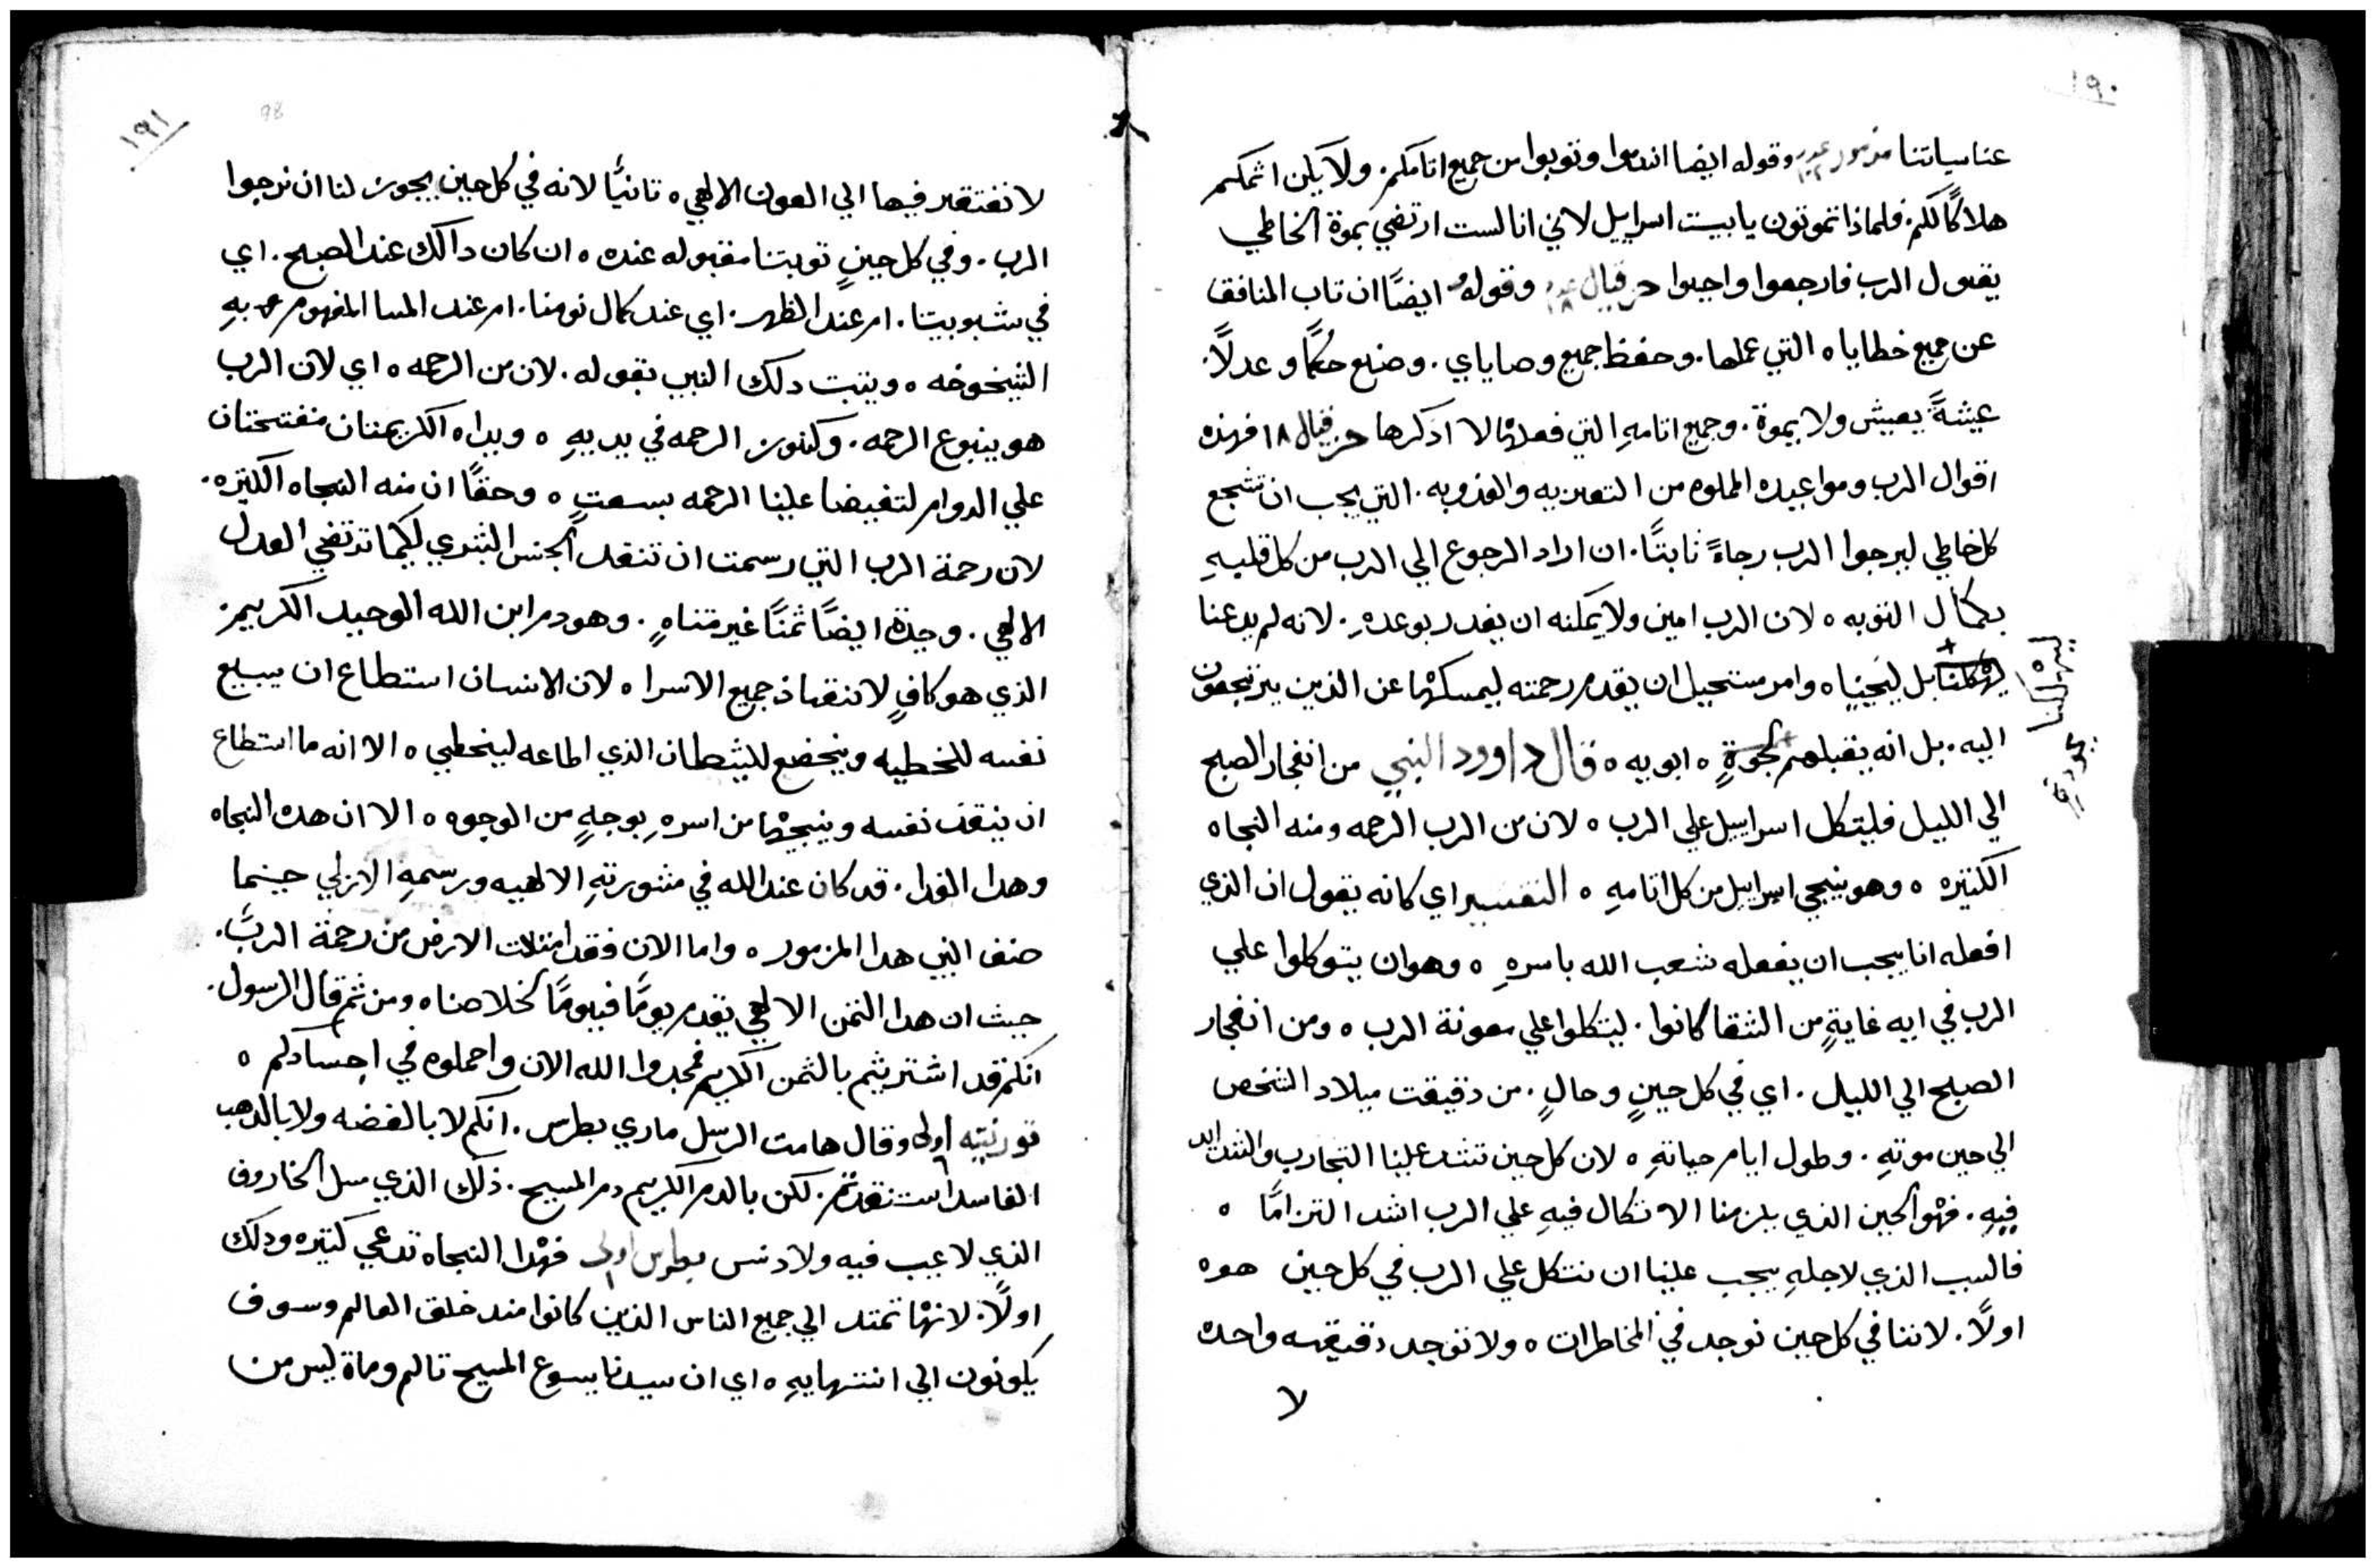 ١٩٠
عنا سياتنا مزمور وقوله ايضا اندموا وتوبوا من جميع اتامكم. ولا يكن اثمكم
هلاكًا لكم. فلماذا تموتون يا بيت اسراييل لاني انا لست ارتضي بموة الخاطي
يقول الرب فارجعوا واحيوا حزقيال ١٨ وقوله ايضًا ان تاب المنافق
عن جميع خطاياه التي عملها. وحفظ جميع وصاياي. وصنع حكمًا وعدلًا.
عيشةً يعيش ولا يموة. وجميع اتامهِ التي فعلها لا اذكرها حزقيال ١٨ فهذه
اقوال الرب ومواعيده الملوه من التعزيه والعذوبه. التي يجب ان تشجع
كل خاطي ليرجوا الرب رجاءً ثابتًا. ان اراد الرجوع الي الرب من كل قلبهِ
بكمال التوبه ٥ لان الرب امين ولا يمكنه ان يغدر بوعدهِ. لانه لم يدعنا
ليهلكنا بل لينجينا ٥ وامر مستحيل ان يعدم رحمته ليمسكها عن الذين يرتجعون
اليه. بل انه يقبلهم بمودةٍ ٥ ابويه ٥ قال داوود النبي من انفجار الصبح
الي الليل فليتكل اسراييل علي الرب ٥ لان من الرب الرحمه ومنه النجاه
الكتيره ٥ وهو ينجي اسراييل من كل اتامهِ ٥ التفسير اي كانه يقول ان الذي
افعله انا يجب ان يفعله شعب الله باسرهِ ٥ وهو ان يتوكلوا علي
الرب في ايه غايةٍ من الشقا كانوا. ليتكلوا علي معونة الرب ٥ ومن انفجار
الصبح الي الليل. اي في كل حينٍ وحالٍ. من دقيقت ميلاد الشخص
الي حين موتهِ. وطول ايام حياتهِ ٥ لان كل حين تشتد علينا التجارب والشدايد
فيهِ. فهو الحين الذي يلزمنا الاتكال فيهِ علي الرب اشد التزامًا ٥
فالسبب الذي لاجلهِ يجب علينا ان نتكل علي الرب في كل حين هوه
اولًا. لاننا في كل حين نوجد في المخاطرات ٥ ولا توجد دقيقه واحده
لا
ليهلكنا
بمودةٍ
١٩١
98
لا نفتقر فيها الي العون الالهي ٥ تانيًا لانه في كل حين يجوز لنا ان نرجوا
الرب. وفي كل حينٍ توبتنا مقبوله عنده ٥ ان كان دالك عند الصبح. اي
في شبوبيتا. ام عند الظهر. اي عند كمال نومنا. ام عند المسا المفهوم بهِ
الشيخوخه ٥ ويتبت دلك النبي بقوله. لان من الرحمه ٥ اي لان الرب
هو ينبوع الرحمه. وكنوز الرحمه في يديهِ ٥ ويداه الكريمتان منفتحتان
علي الدوام لتفيضا علينا الرحمه بسعتٍ ٥ وحقًا ان منه النجاه الكتيره.
لان رحمة الرب التي رسمت ان تنقد الجنس البشري لكيما ترتضي العدل
الالهي. وجدة ايضًا ثمنًا غير متناهٍ. وهو دم ابن الله الوحيد الكريم.
الذي هو كافٍ لانتقاذ جميع الاسرا ٥ لان الانسان استطاع ان يبيع
نفسه للخطيه ويخضع للشطان الذي اطاعه ليخطي ٥ الا انه ما استطاع
ان ينقذ نفسه وينجيها من اسرهِ بوجهٍ من الوجوه ٥ الا ان هده النجاه
وهدا الفدا. قد كان عند الله في مشورتهِ الالهيه ورسمهِ الازلي حينما
صنف النبي هدا المزمور ٥ واما الان فقد امتلات الارض من رحمة الرب.
حيث ان هدا التمن الالهي يقدم يومًا فيومًا لخلاصنا ٥ ومن ثم قال الرسول.
انكم قد اشتريتم بالثمن الكريم فمجدوا الله الان واحملوه في اجسادكم ٥
قورنتيه اولى وقال هامت الرسل ماري بطرس. انكم لا بالفضه ولا بالدهب
الفاسد استنقدتم. لكن بالدم الكريم دم المسيح. ذلك الذي مسل الخاروف
الذي لا عيب فيه ولا دنس بطرس اولى ١ فهدا النجاه تدعي كتيره ودلك
اولًا. لانها تمتد الي جميع الناس الذين كانوا مند خلق العالم وسوف
يكونون الي انتهايهِ ٥ اي ان سيدنا يسوع المسيح تالم وماة ليس من